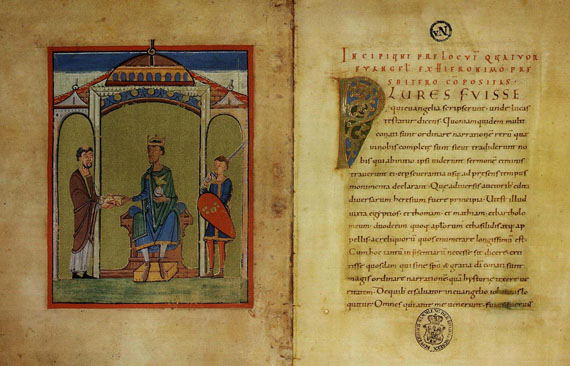 EVANGEL EX HIERONIMO PRES
BITERO COPOSITAE.
PLURES FVISSE
qui euangelia scripserunt lucas
testatur dicens. Quoniam quidem multi
conati sunt ordinare narratione reru qua
in nobis complete sunt sicut tradiderunt no
bis qui ab initio ipsi uiderunt sermone minis
trauerunt et perseuerantia usq; ad presens tempus
monumenta declarant. Que a diuersis auctorib; edita
diuersarum heresium fuere principia. Ut est illud
iuxta egyptios. et thomam. et mathiam. et bartholo
meum. duodecim quoq; aplorum et basilidis atq; a
pellis. ac reliquorum quos enumerare longissimu est.
Cum hoc tantu in presentiaru necesse sit dicere. exti
tisse quosdam qui sine spu & gratia di conati sunt
magis ordinare narratione qua hystorie texere ue
ritatem. De quib; et saluator in euangelio iohannis lo
quitur. Omnes qui ante me uenerunt. fures fuerunt